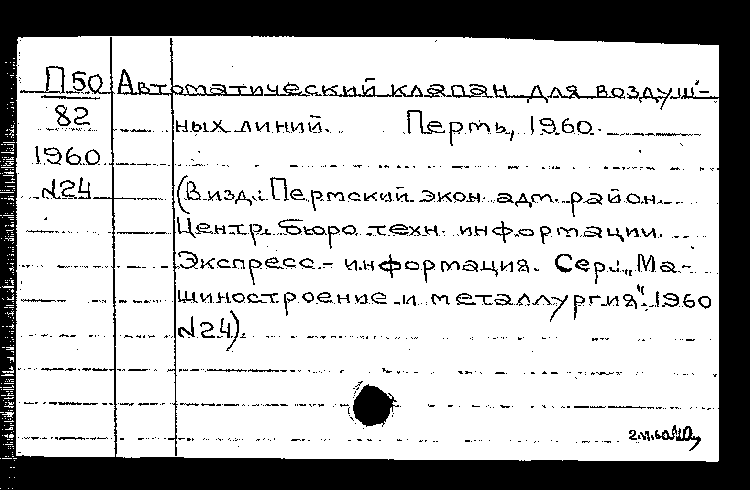 П50 Автоматический клапан для воздуш-
82 ных линий. Пермь, 1960.
1960
№24 (В изд.: Пермский экон. адм. район.
Центр. бюро техн. информации.
Экспресс-информация. Сер. „Ма-
шиностроение и металлургия". 1960
№24).